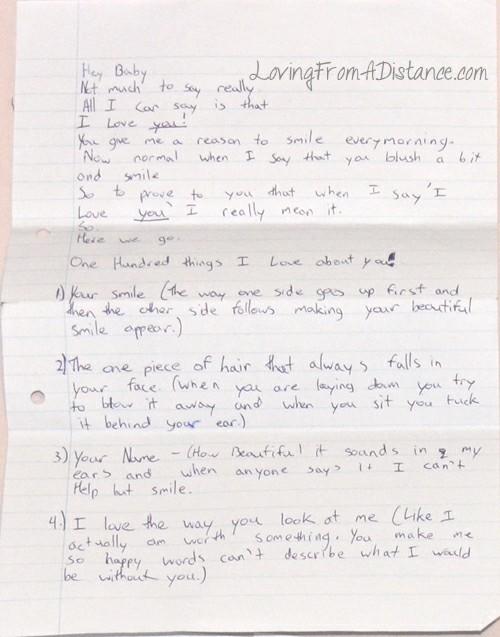 LovingFromADistance.com
Hey Baby
Not much to say really.
All I can say is that
I Love you!
You give me a reason to smile everymorning.
Now normal when I say that you blush a bit
and smile
So to prove to you that when I say 'I
Love you' I really mean it.
So.
Here we go.
One Hundred things I Love about you!
1) Your smile (The way one side goes up first and
then the other side follows making your beautiful
smile appear.)
2) The one piece of hair that always falls in
your face. (when you are laying down you try
to blow it away and when you sit you tuck
it behind your ear.)
3) Your Name - (How Beautiful it sounds in my
ears and when anyone says it I can't
Help but smile.
4.) I love the way you look at me (Like I
actually am worth something. You make me
so happy words can't describe what I would
be without you.)